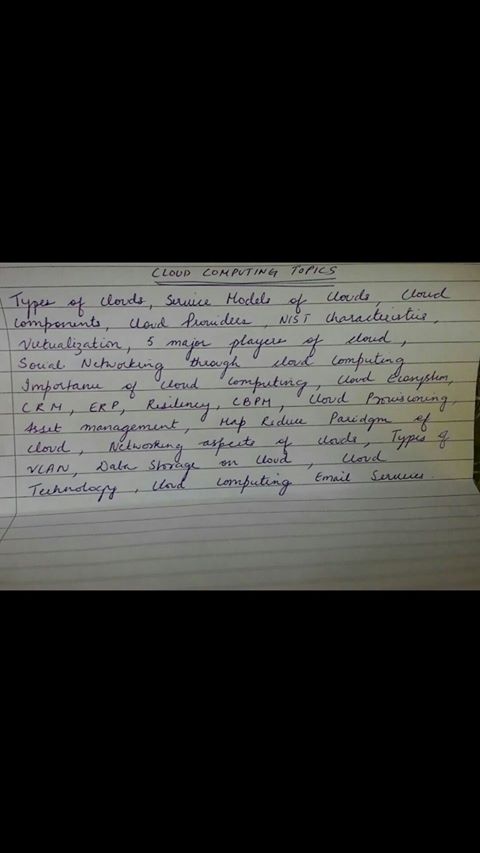 CLOUD COMPUTING TOPICS
Types of Clouds, Service Models of Clouds, Cloud
components, Cloud Providers, NIST Characteristics,
Virtualization, 5 major players of cloud,
Social Networking through cloud computing
Importance of cloud computing, Cloud Ecosystem,
CRM, ERP, Resiliency, CBPM, Cloud Provisioning,
Asset management, Map Reduce Paridgm of
cloud, Networking aspects of clouds, Types of
VLAN, Data Storage on Cloud, Cloud
Technology, Cloud Computing Email Services.